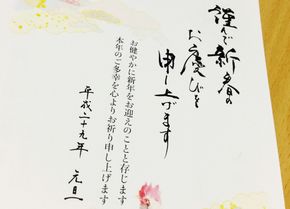 謹んで新春の
お慶びを
申し上げます
お健やかに新年をお迎えのことと存じます
本年のご多幸を心よりお祈り申し上げます
平成二十九年 元旦